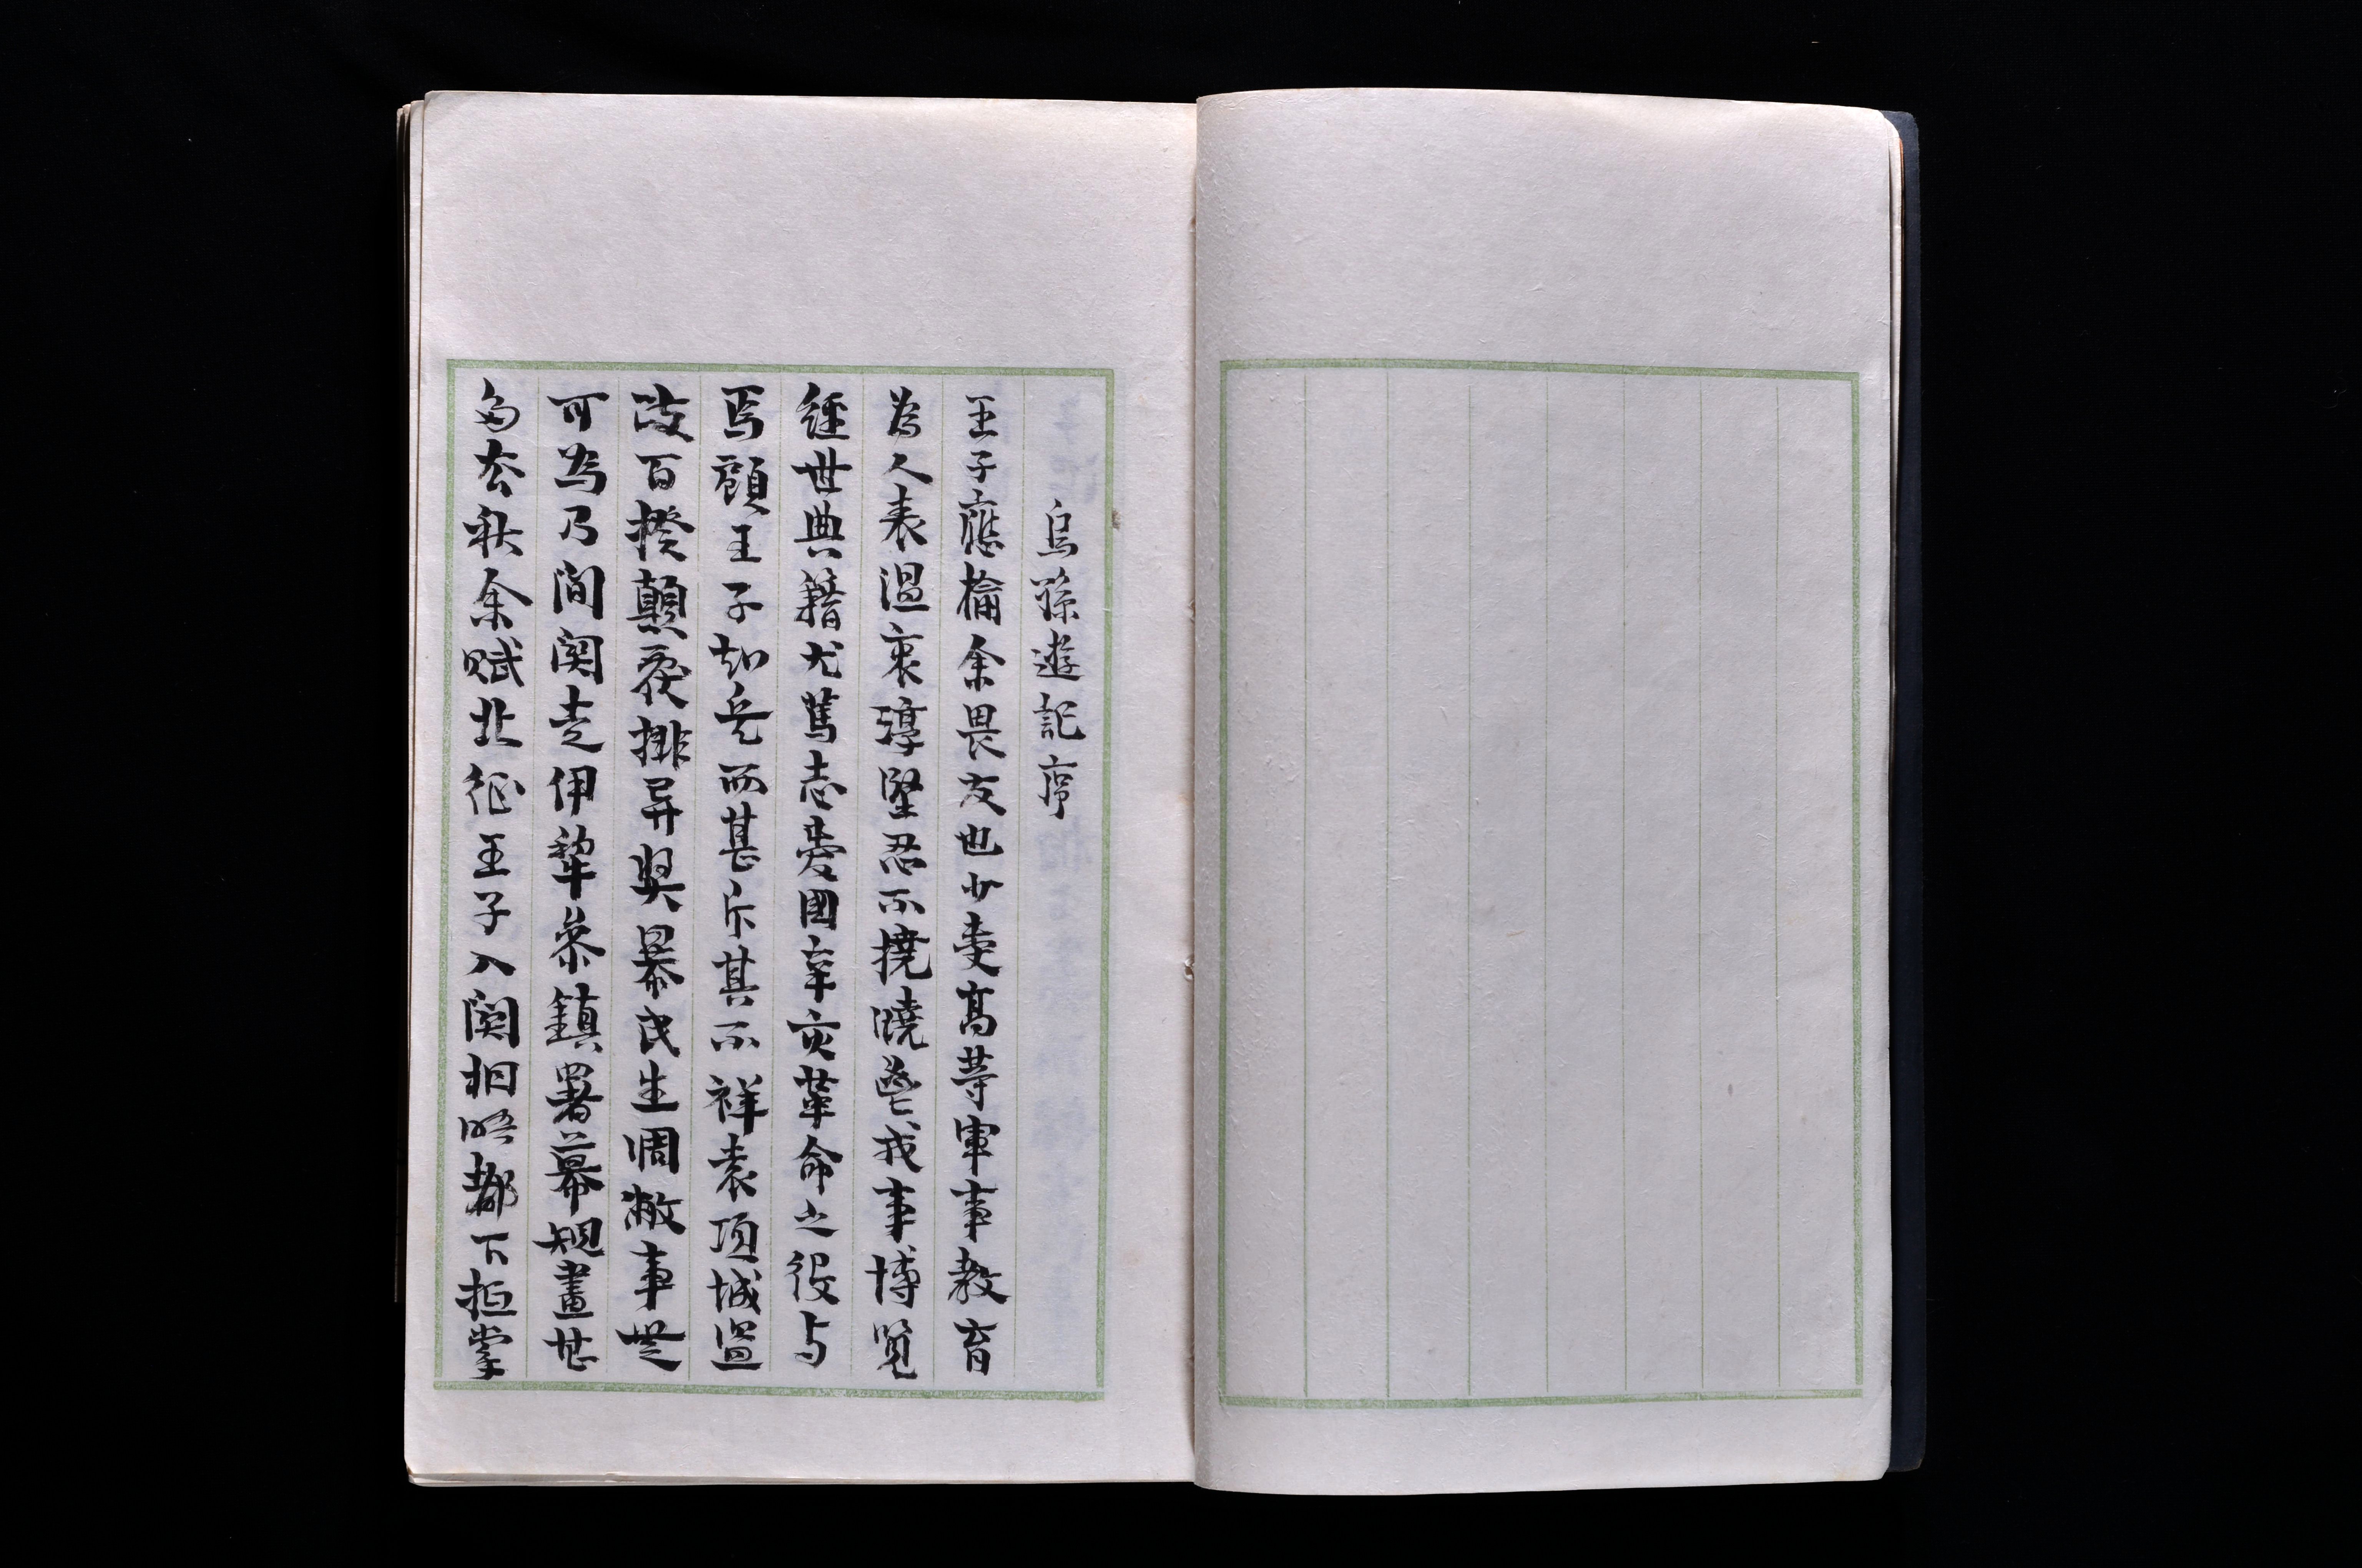 烏孫遊記序
王子應楡余畏友也少受高等軍事教育
為人表溫裏淳堅忍不撓曉鬯戎事博覽
經世典籍尤篤志愛國辛亥革命之役与
焉顧王子知兵而甚斥其不祥袁項城盜
改百揆顛覆排异奬暴民生凋敝事無
可為乃間関走伊犂參鎮署幕規畫甚
多厺秋余賦北征王子入関相晤都下抵掌